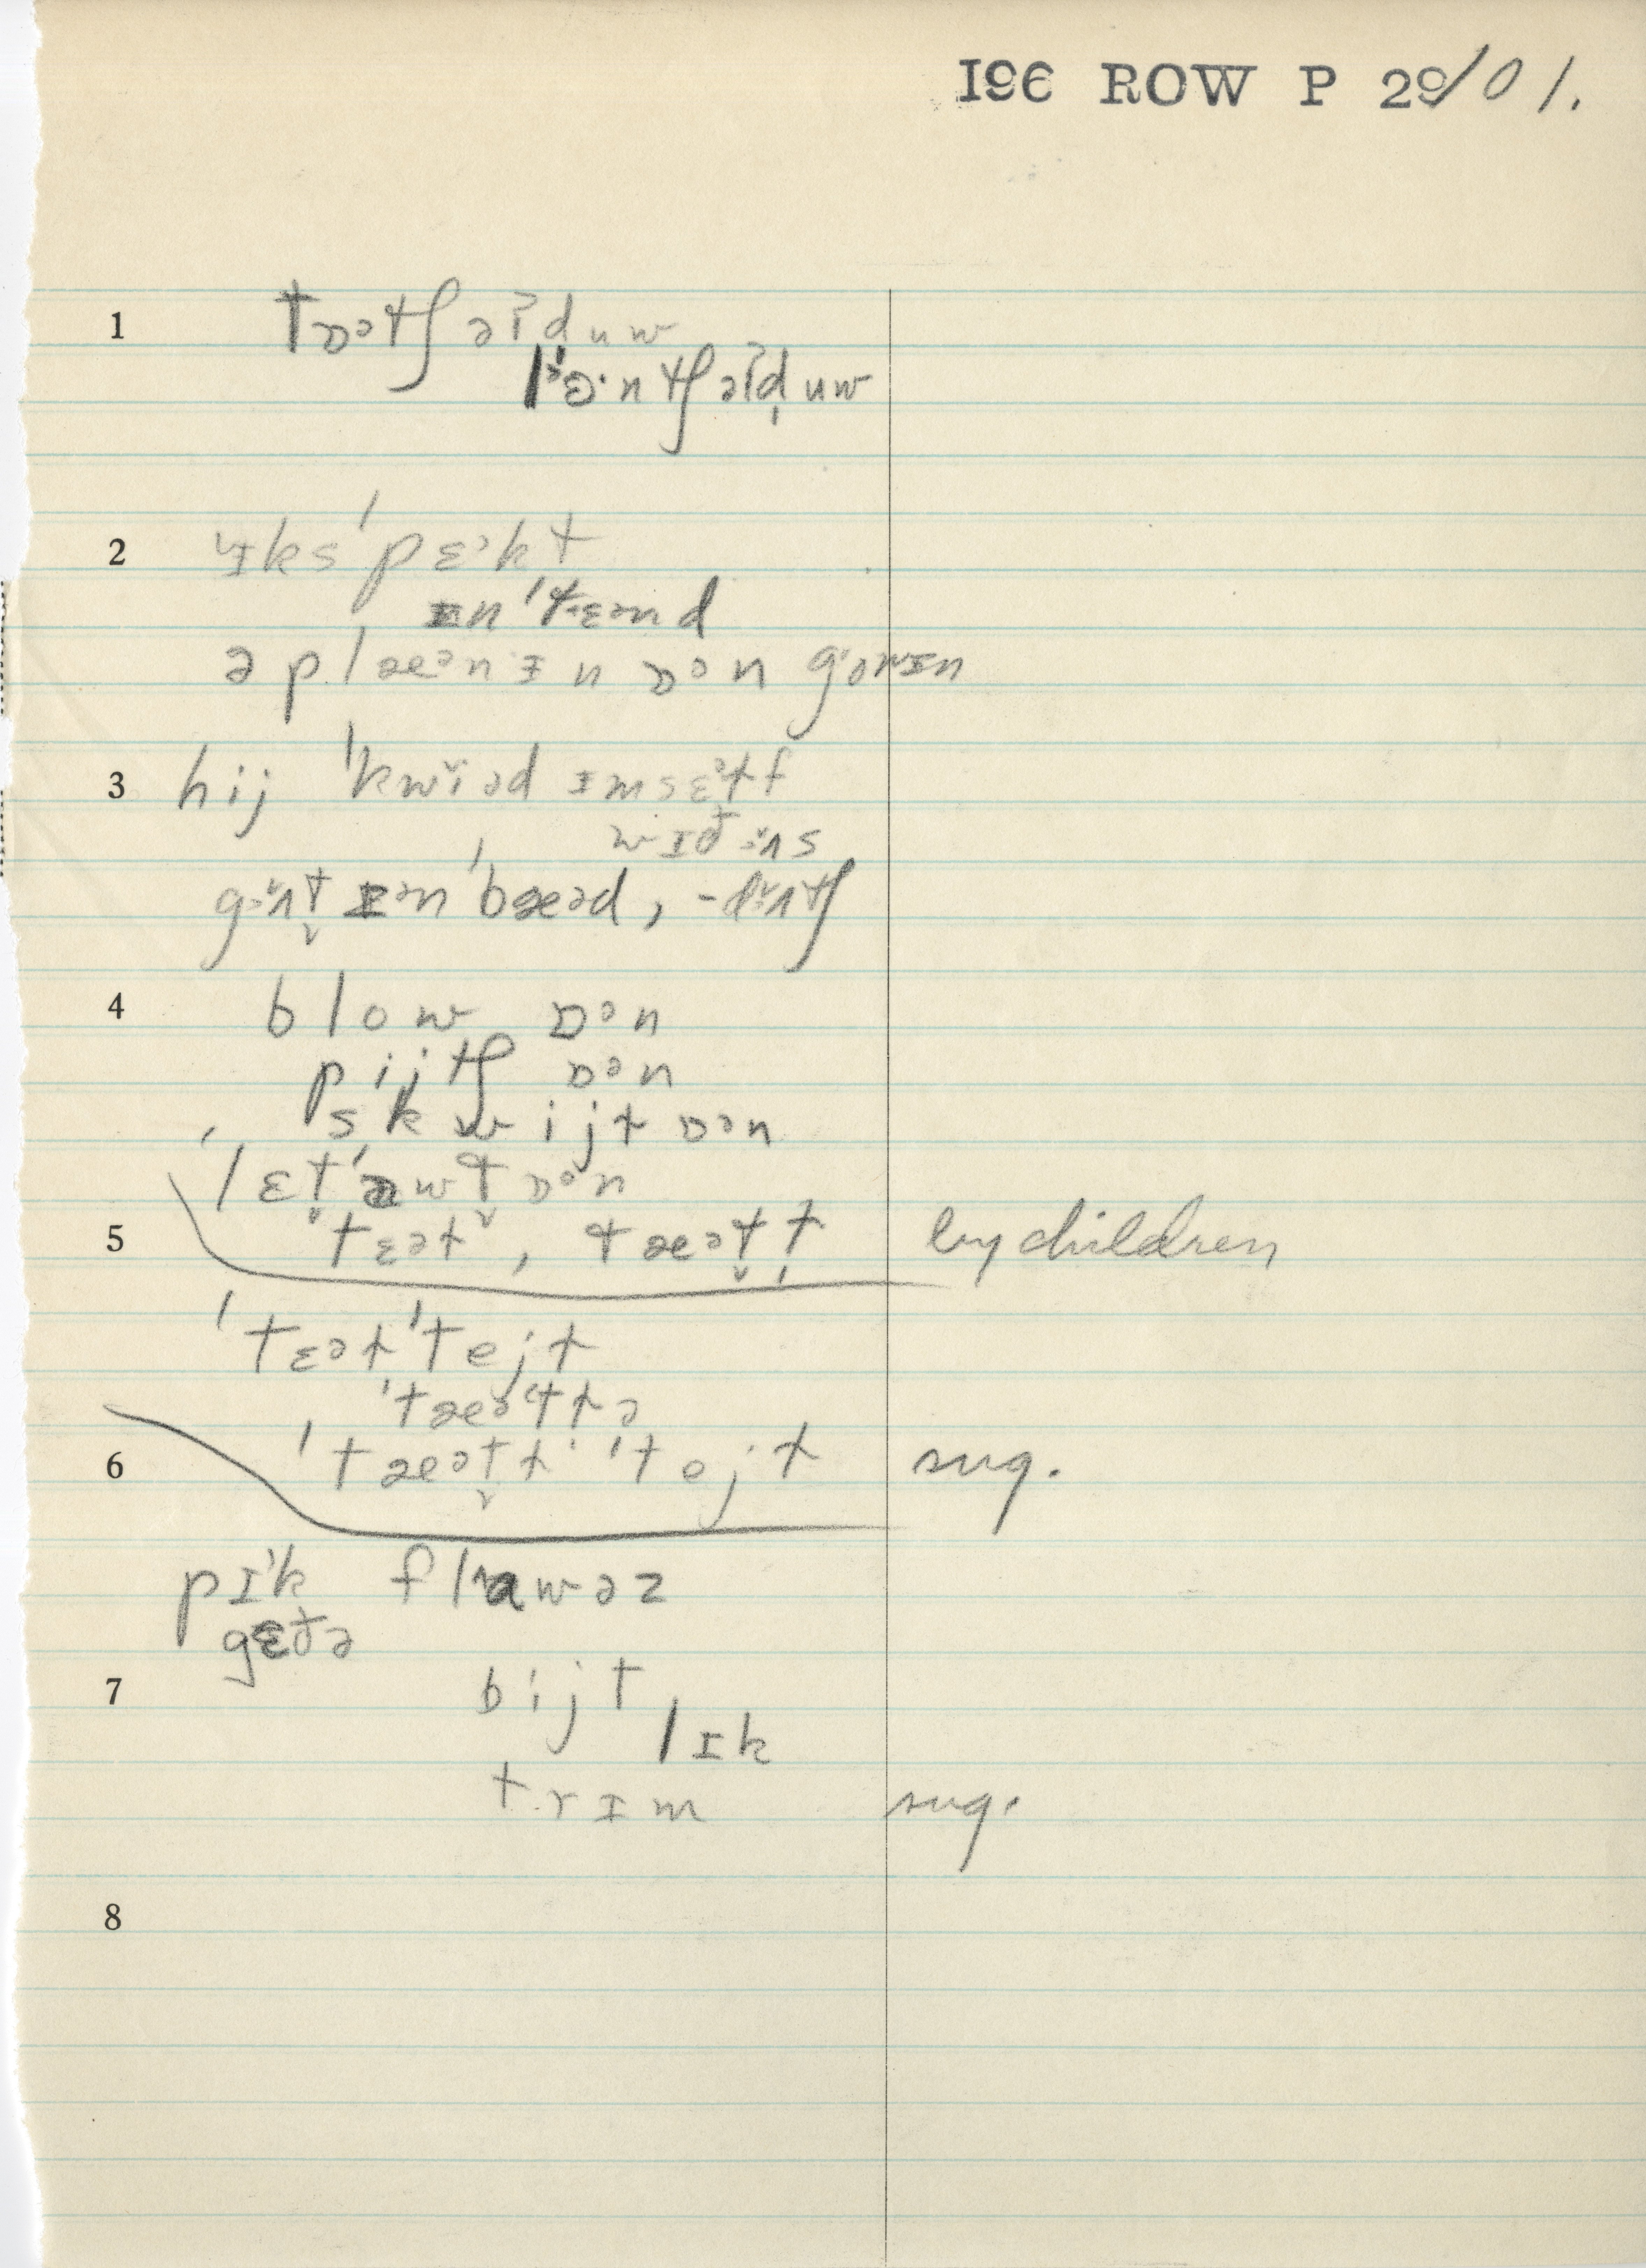 I96 ROW P 29/01.
1 tɒətʃ əɪduw
lɜ·ntʃ əɪd̩uw
2 ɪks'pɛ˃kt
ɪn'tɛənd
ə plæənɪn ɒən gowɪn
3 hij 'kwiəd ɪmsɛətf
wɪðɜɪs
gɜɪt̬ ɪən'bæəd, -dɜɪtʃ
4 blow ɒən
pijtʃ ɒən
skwijt ɒən
'lɛt̬'awt̬ ɒən
5 tɛət, tæət̬t by children
'tɛət'tejt
'tæəttə
6 'tæət̬t 'tejt sug.
pɪ˃k flawəz
gɛðə
7 bijt
lɪk
trɪm sug.
8